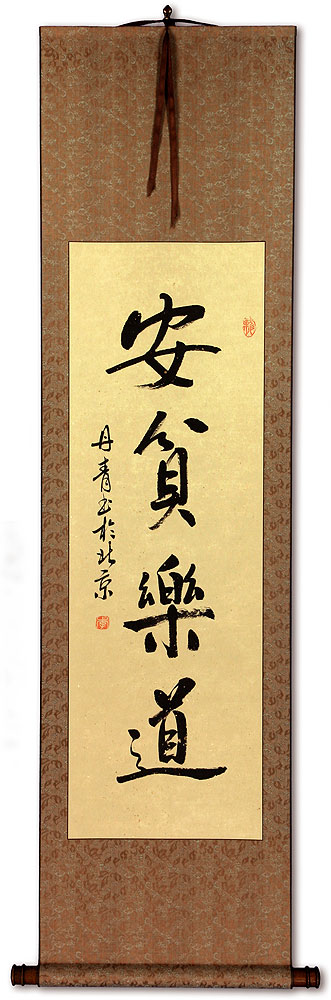 安貧樂道
丹青书於北京